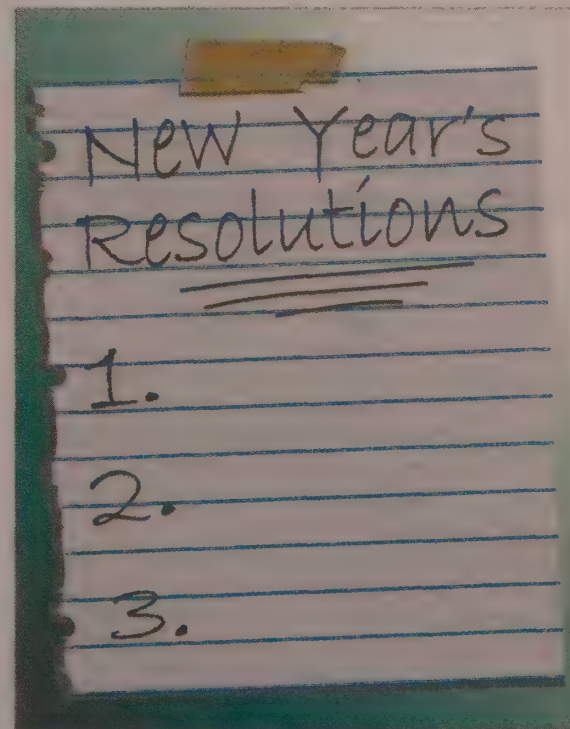 New Year's
Resolutions
1.
2.
3.